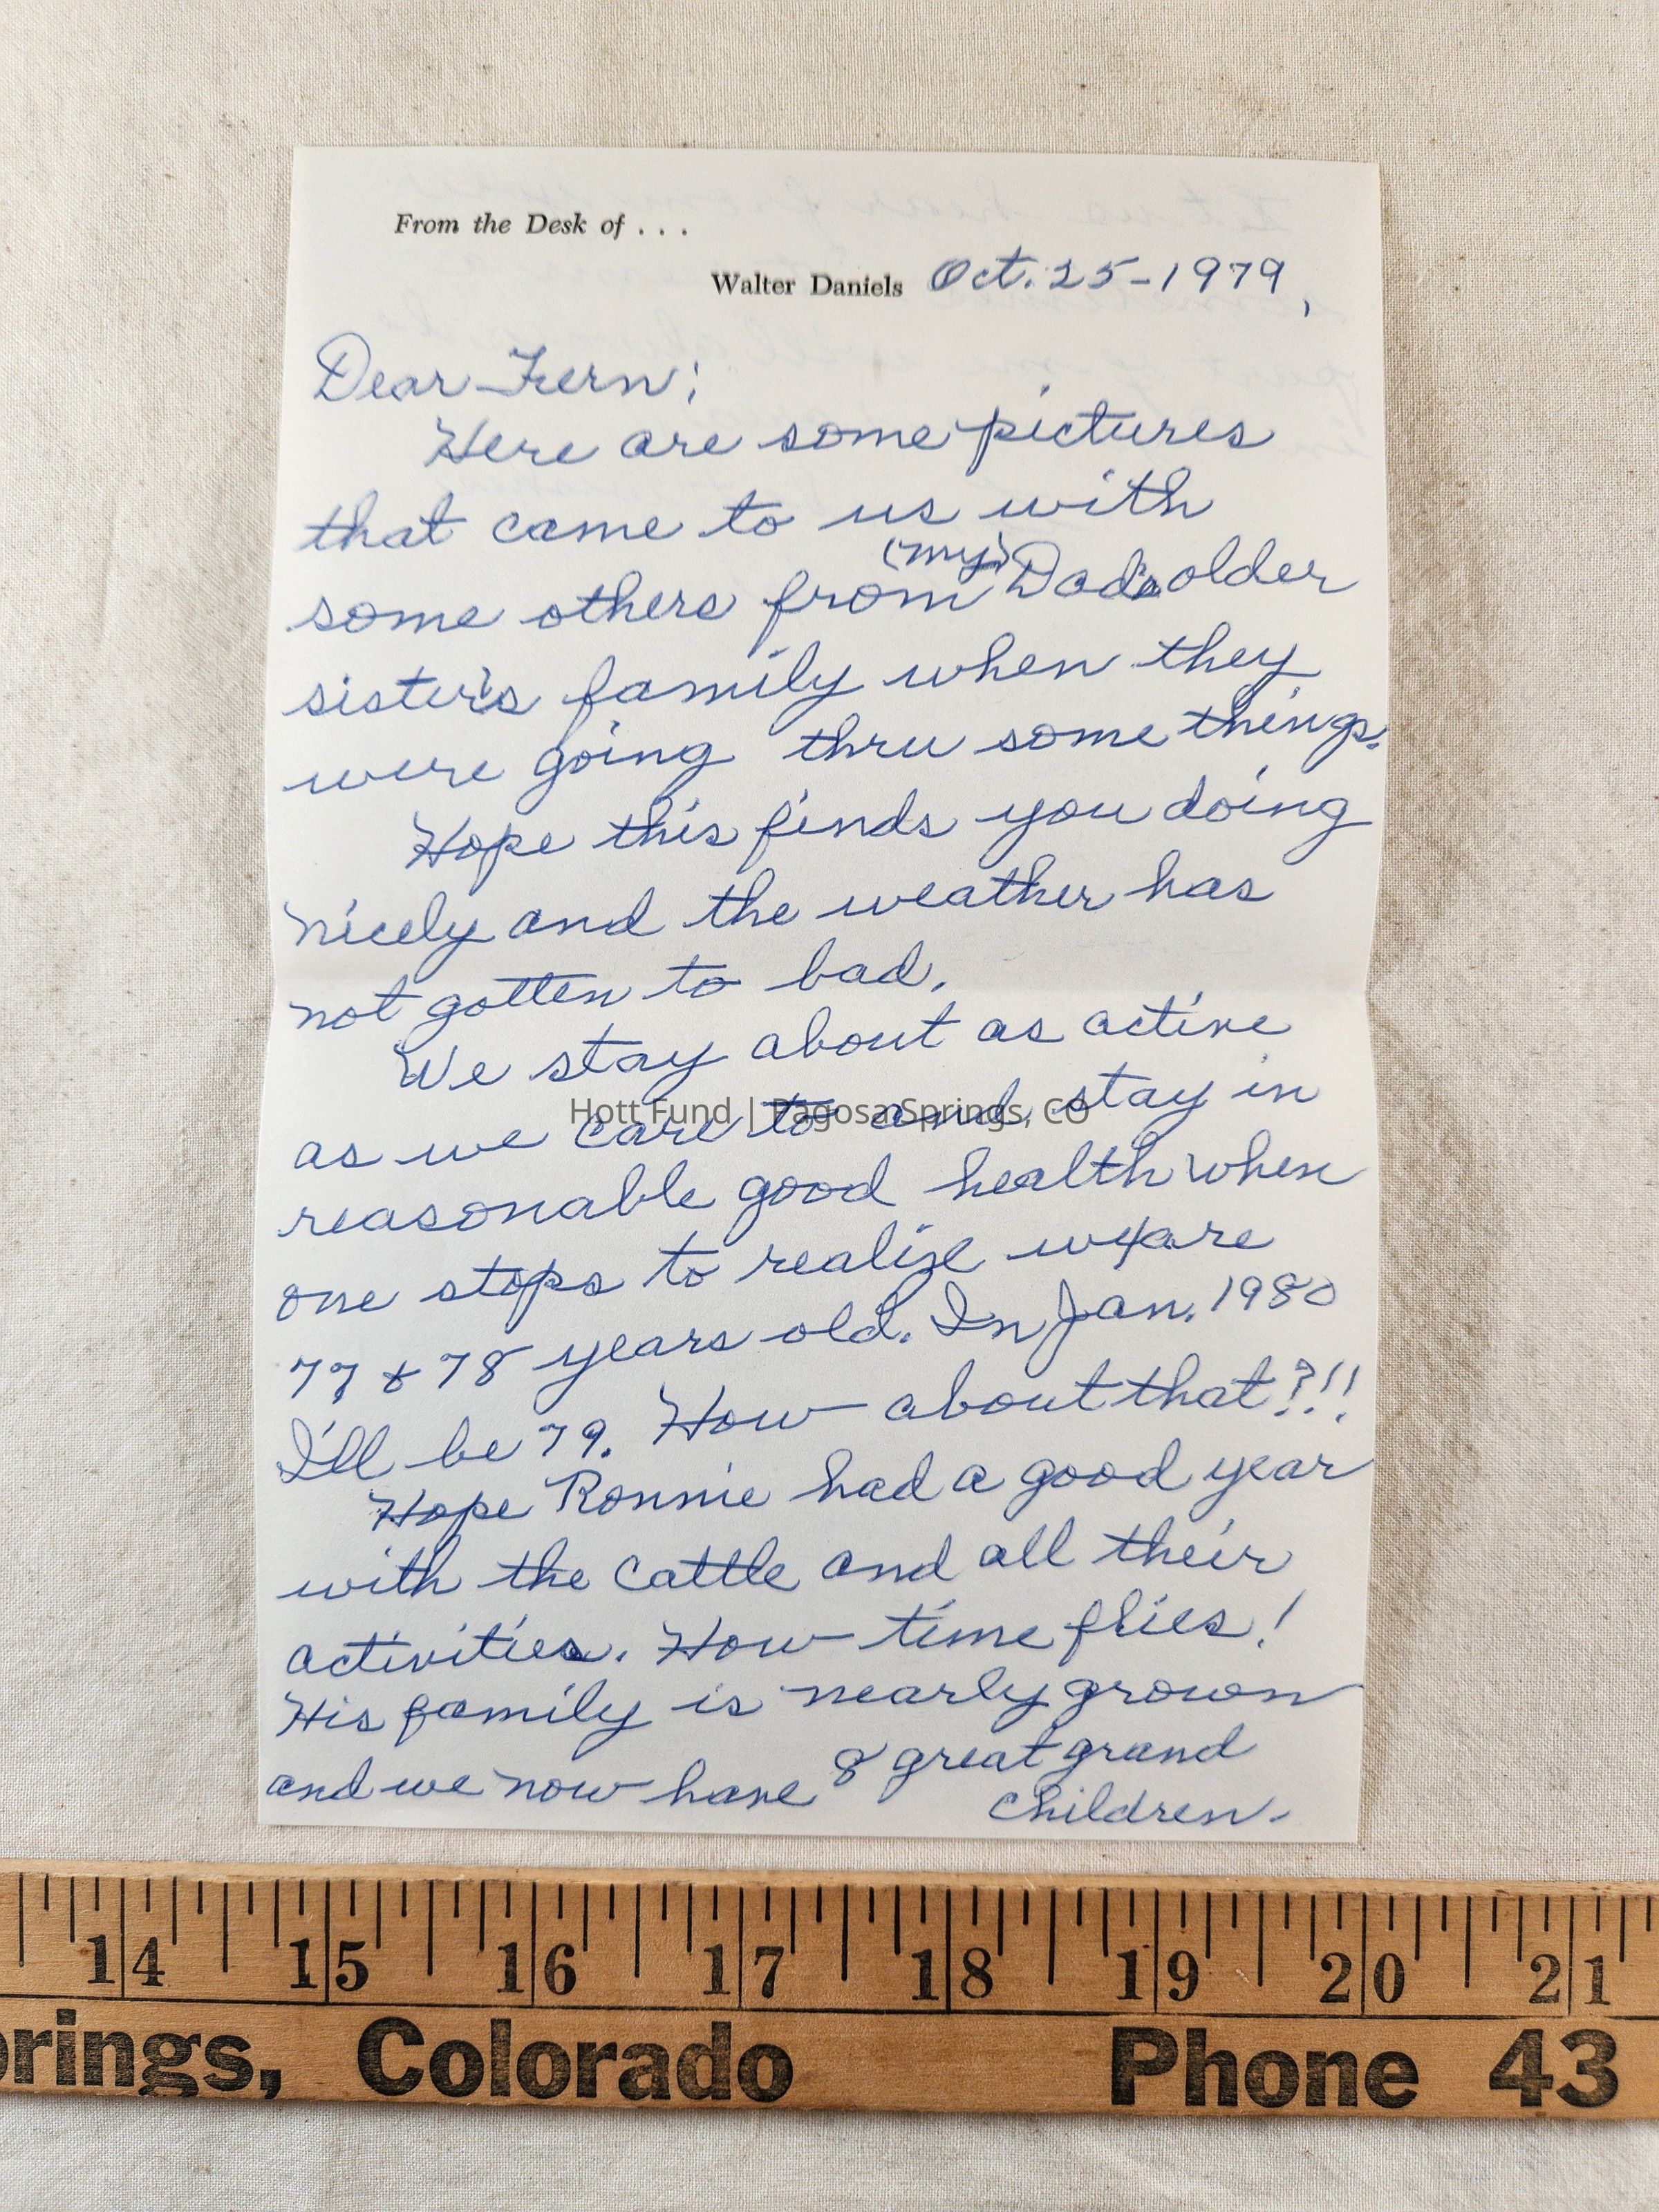 From the Desk of . . .
Walter Daniels Oct. 25-1979,
Dear Fern;
Here are some pictures
that came to us with
some others from (my) Dad's older
sister's family when they
were going thru some things.
Hope this finds you doing
nicely and the weather has
not gotten to bad.
We stay about as active
as we care to and stay in
Hott Fund | PagosaSprings, CO
reasonable good health when
one stops to realize we are
77 & 78 years old. In Jan. 1980
I'll be 79. How about that?!!
Hope Ronnie had a good year
with the cattle and all their
activities. How time flies!
His family is nearly grown
and we now have 8 great grand
children.
14 15 16 17 18 19 20 21
prings, Colorado Phone 43